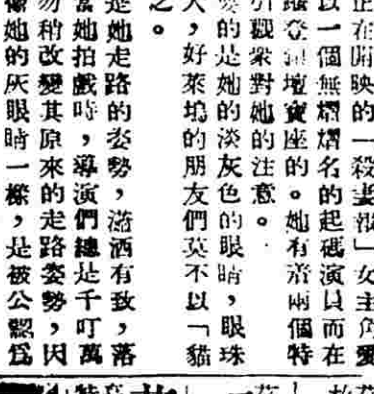 正在開映的「殺妻報」女主角愛
以一個無熠熠名的起碼演員而在
登銀壇寶座的。她有着兩個特
引觀衆對她的注意。
的是她的淡灰色的眼睛，眼珠
大，好萊塢的朋友們莫不以「貓
之。
是她走路的姿勢，瀟洒有致，落
當她拍戲時，導演們總是千叮萬
勿稍改變其原來的走路姿勢，因
像她的灰眼睛一樣，是被公認爲